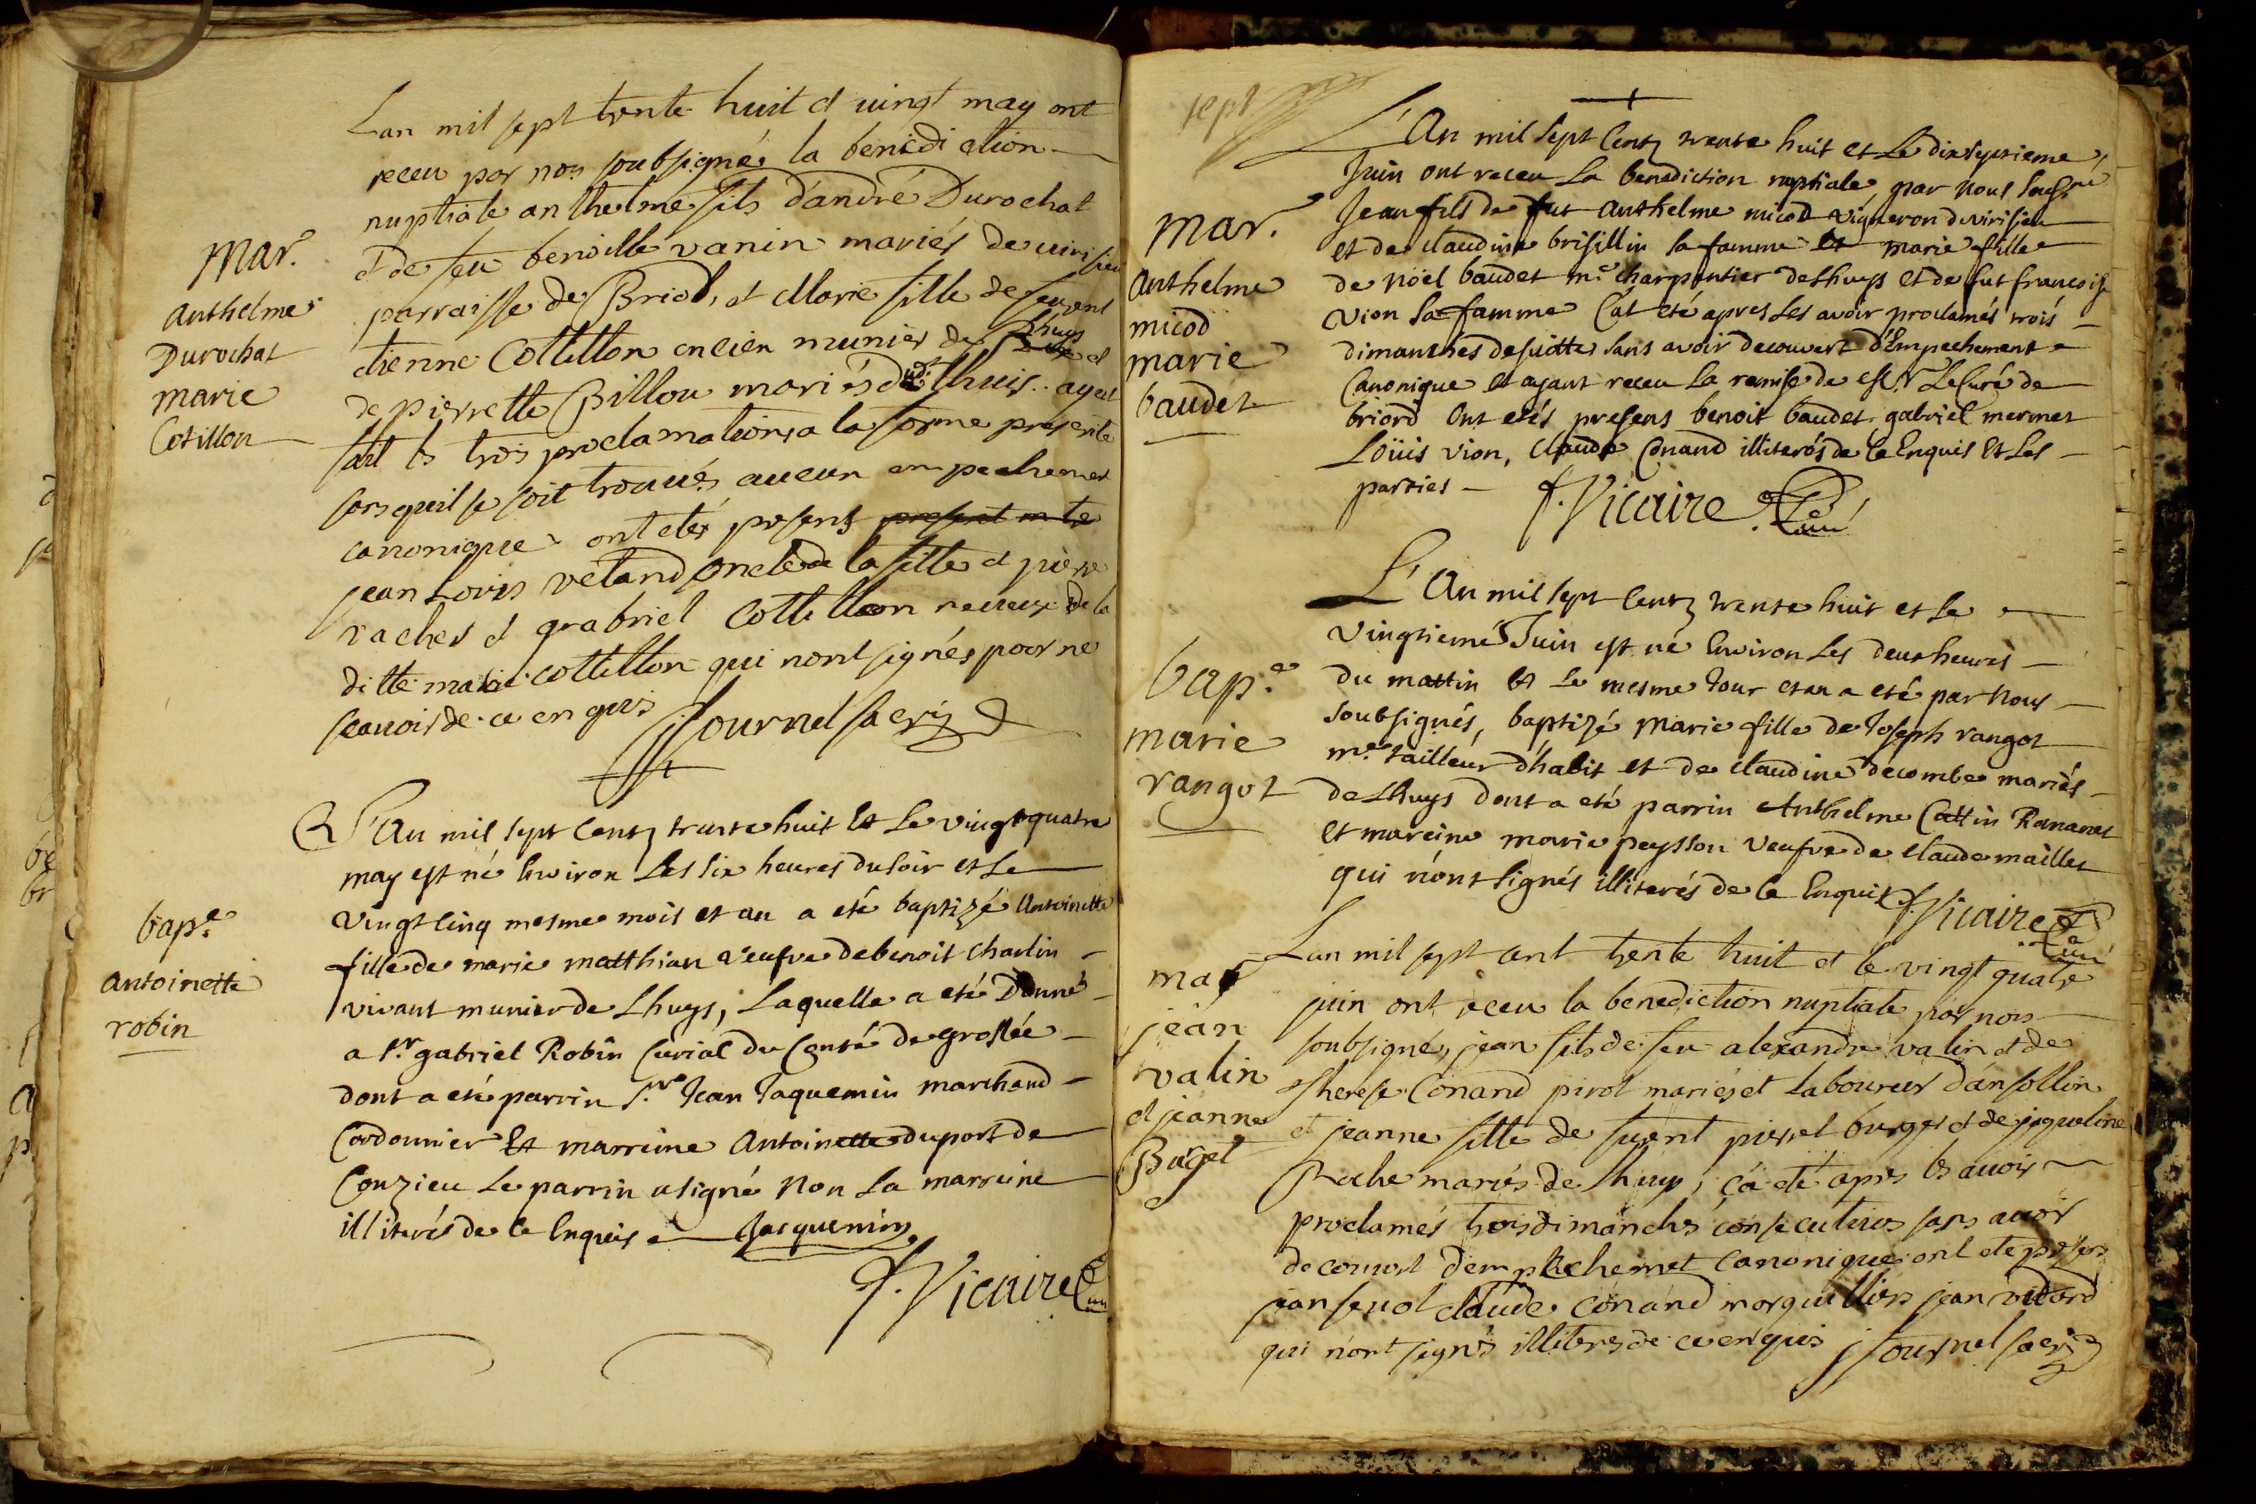 Mar.
Anthelme
Durochat
marie
Cotillon
Lan mil sept trente huit et uingt may ont
receu par nos soubsigné la benediction
nuptiale anthelme fils d'andré Durochat
et de feu benoitte vanin mariés de uirisieu
parroisse de Briod, et Marie fille de feu
etienne Cottillon encien munier de Lhuys et
de pierrette Billou mariés dud. lhuis ayant
fait les trois proclamations a la forme presente
sans quil se soit trouués aucun empechement
canonique ont etés presens present
jean Louis vetand oncle de la fille et pierre
vacher et grabriel Cottillon neueux de la
ditte marie cottillon qui nont signés poor ne
scauoir de ce enquis Journel
bap.e
antoinette
robin
L'An mil sept Centz trente huit et Le vingt quatre
may est né Environ Les six heures du soir et Le
vingt cinq mesme mois et an a eté baptizé Antoinette
fille de marie matthian veufve de benoit charlin
vivant munier de Lhuys, Laquelle a eté Donné
a s.r gabriel Robin Curial du Conté de groslée
dont a eté parrin s.r Jean Jaquemin marchand
Cordonnier Et marreine Antoinette duport de
Conzieu Le parrin a signé Non La marreine
illiterés de Ce Enquis Jacquemin
f. Vicaire Curé
sept
Mar.
Anthelme
micod
marie
baudet
L'An mil Sept Centz trente huit et Le dixseptieme
Juin ont receu La benediction nuptiale par Nous sousné
Jean fils de fut Anthelme micod vigneron de virisieu
et de claudine brisillin sa famme et marie fille
de Noël baudet m.e charpentier de Lhuys et de fut francoise
vion sa famme Cat eté apres Les avoir proclamés trois
dimanches desuitte sans avoir decouvert d'Empechement
Canonique et ayant receu La remise de Le Curé de
briord Ont etés presens benoit baudet gabriel mermet
Loüis vion, claude Conand illiterés de Ce Enquis Et Les
parties f. Vicaire Curé
bap.e
marie
rangot
L'An mil sept Centz trente huit et Le
vingtieme Juin est né Environ Les deux heures
du mattin et Le mesme Jour et an a eté par Nous
soubsignés, baptizé marie fille de Joseph rangot
m.e tailleur d'habit et de claudine decombe mariés
de Lhuys dont a eté parrin Anthelme Cattin Ramanet
et mareine marie peysson veufve de claude maillet
qui n'ont signés illiterés de Ce Enquit f. Vicaire Curé
mar
jean
valin
et jeanne
Burget
Lan mil sept cent trente huit et le vingt quatre
juin ont receu la benediction nuptiale par nos
soubsigné, jean fils de feu alexandre valin et de
therese Conand pirot mariés et laboureur d'ansollin
et jeanne fille de pierret burget et de jaqueline
Roche mariés de lhuys, ça eté apres les auoir
proclamés trois dimanches consecutives sans auoir
decouvert dempechemet canonique ont ete presens
jean claude conand morguilliers jean vidord
qui n'ont signés illiteres de ce enquis Journel